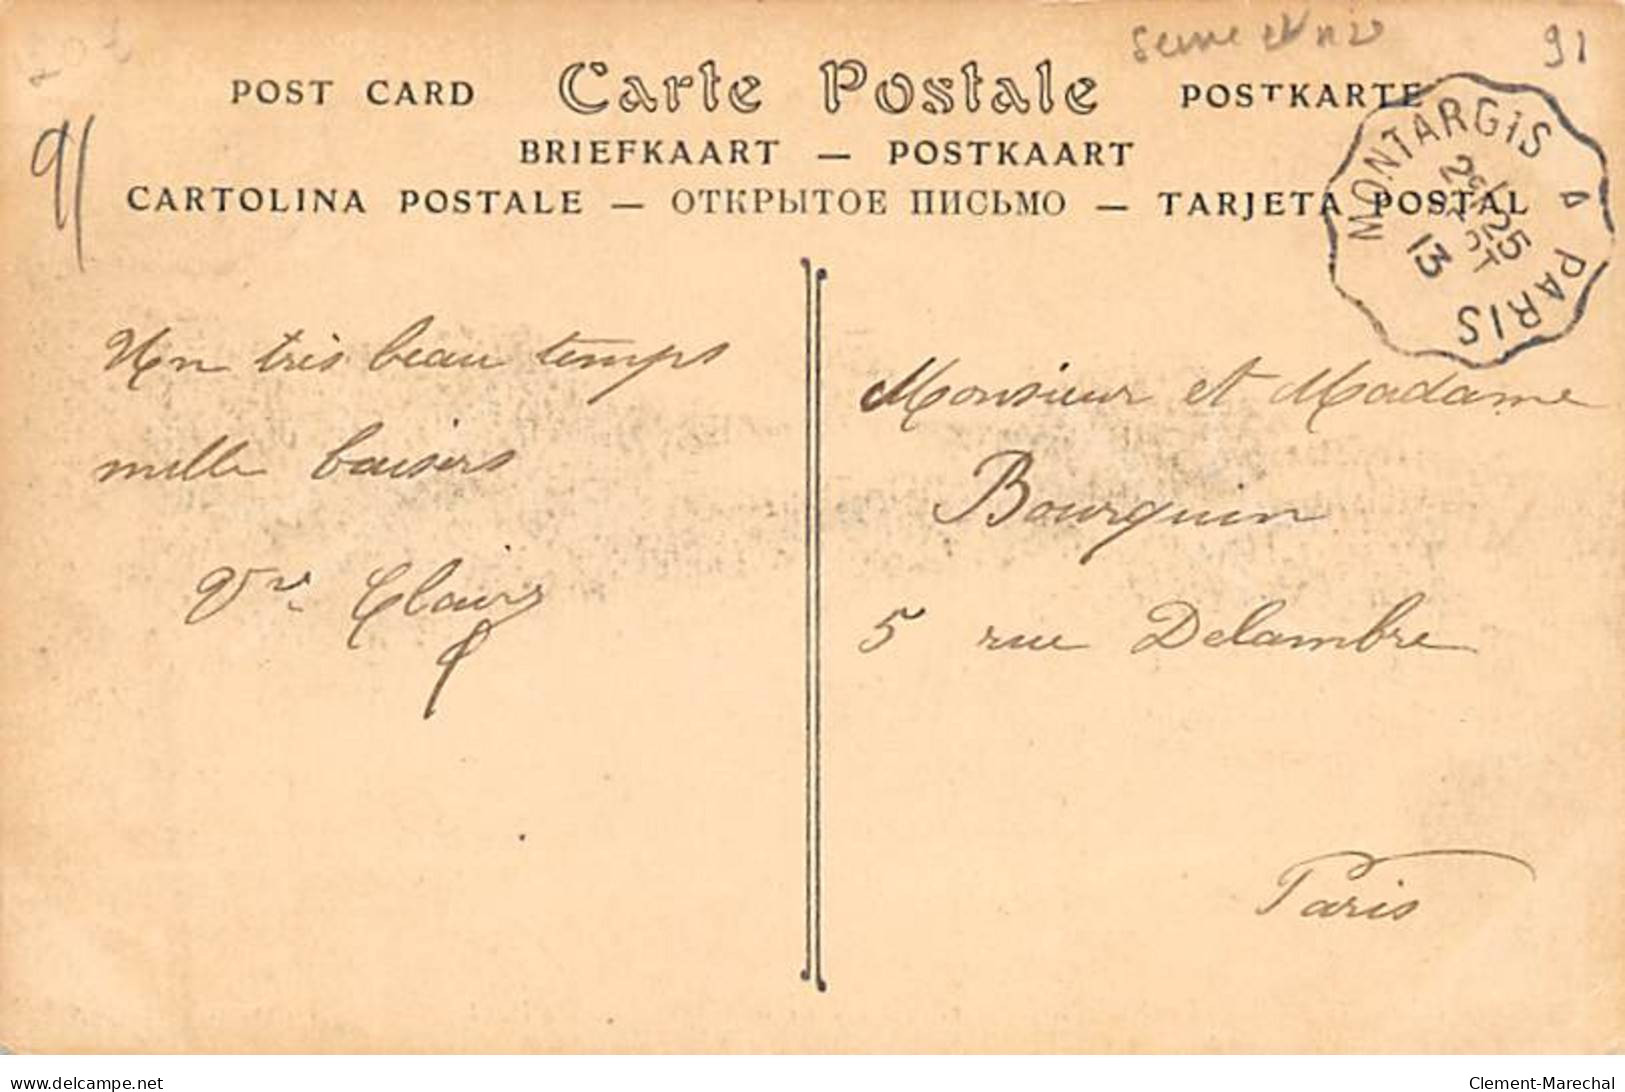 91
POST CARD Carte Postale POSTKARTE
BRIEFKAART — POSTKAART
CARTOLINA POSTALE — ОТКРЫТОЕ ПИСЬМО — TARJETA POSTAL
91
MONTARGIS A PARIS
25
13
Un très beau temps
mille baisers
Monsieur et Madame
Bourquin
5 rue Delambre
Paris
www.delcampe.net
Clement-Marechal